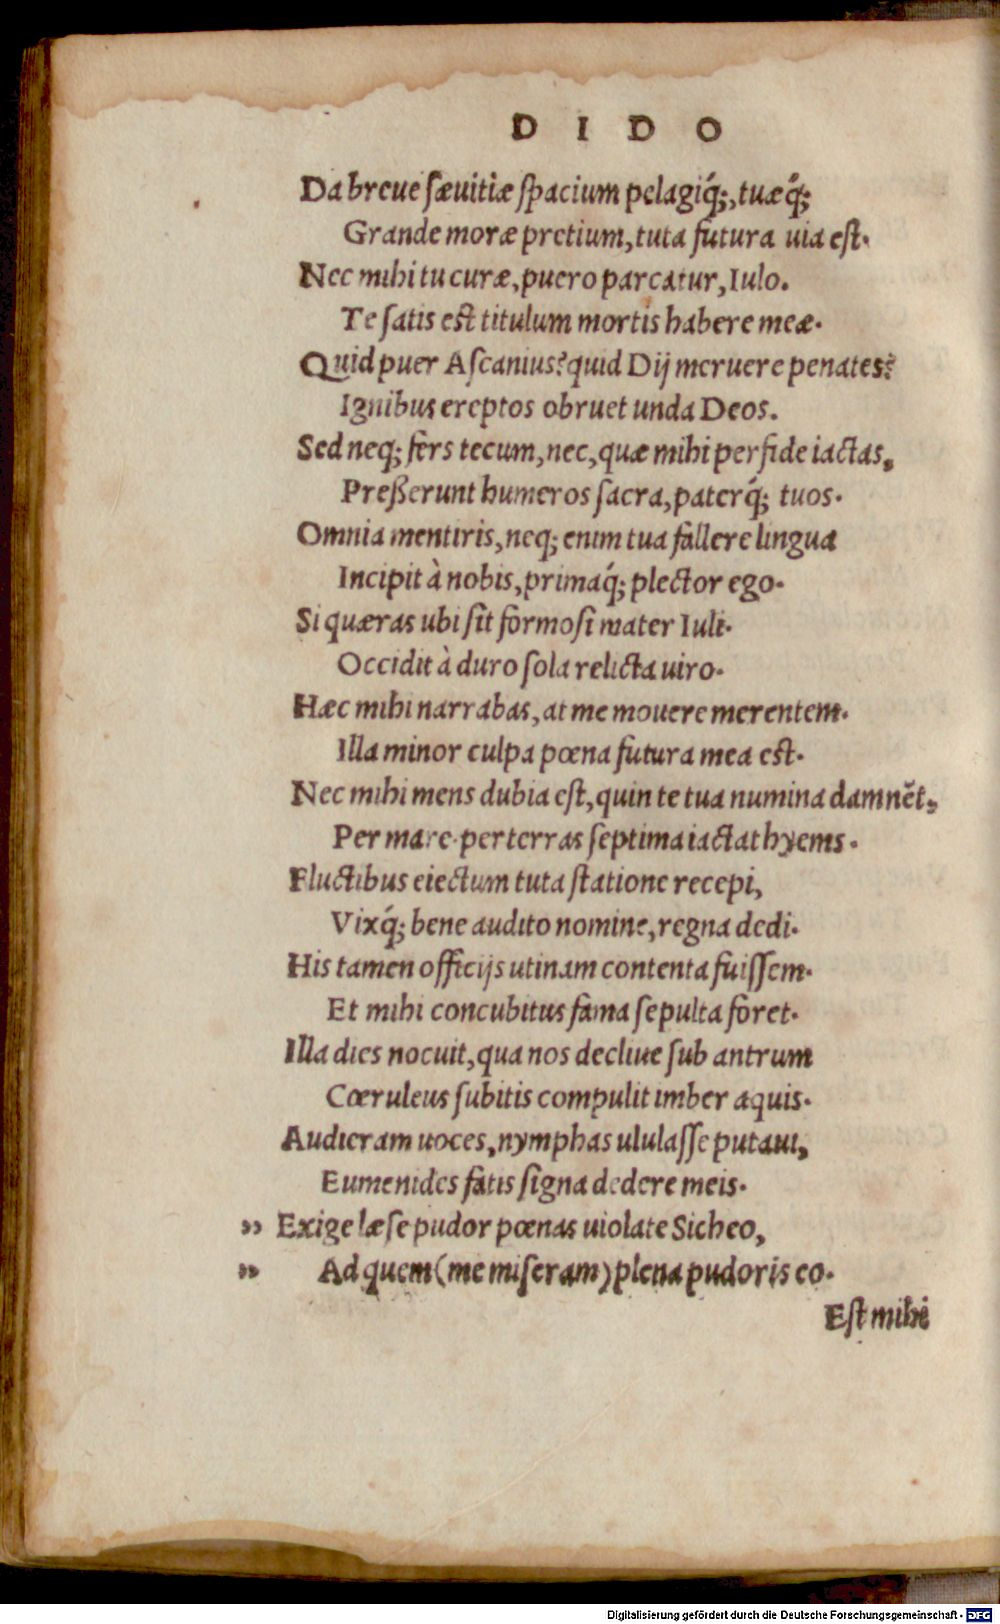 D I D O
Da breue sæuitiæ spacium pelagiq́;, tuæq́;
Grande moræ pretium, tuta futura uia est.
Nec mihi tu curæ, puero parcatur, Iulo.
Te satis est titulum mortis habere meæ.
Quid puer Ascanius? quid Dij meruere penates?
Ignibus ereptos obruet unda Deos.
Sed neq; fers tecum, nec, quæ mihi perfide iactas,
Preßerunt humeros sacra, paterq́; tuos.
Omnia mentiris, neq; enim tua fallere lingua
Incipit à nobis, primaq́; plector ego.
Si quæras ubi sit formosi mater Iuli.
Occidit à duro sola relicta uiro.
Hæc mihi narrabas, at me mouere merentem.
Illa minor culpa pœna futura mea est.
Nec mihi mens dubia est, quin te tua numina damnẽt,
Per mare. per terras septima iactat hyems.
Fluctibus eiectum tuta statione recepi,
Vixq́; bene audito nomine, regna dedi.
His tamen officijs utinam contenta fuissem.
Et mihi concubitus fama sepulta foret.
Illa dies nocuit, qua nos decliue sub antrum
Cœruleus subitis compulit imber aquis.
Audieram uoces, nymphas ululasse putaui,
Eumenides fatis signa dedere meis.
" Exige læse pudor pœnas uiolate Sicheo,
" Ad quem (me miseram) plena pudoris eo.
Est mihi
Digitalisierung gefördert durch die Deutsche Forschungsgemeinschaft - DFG